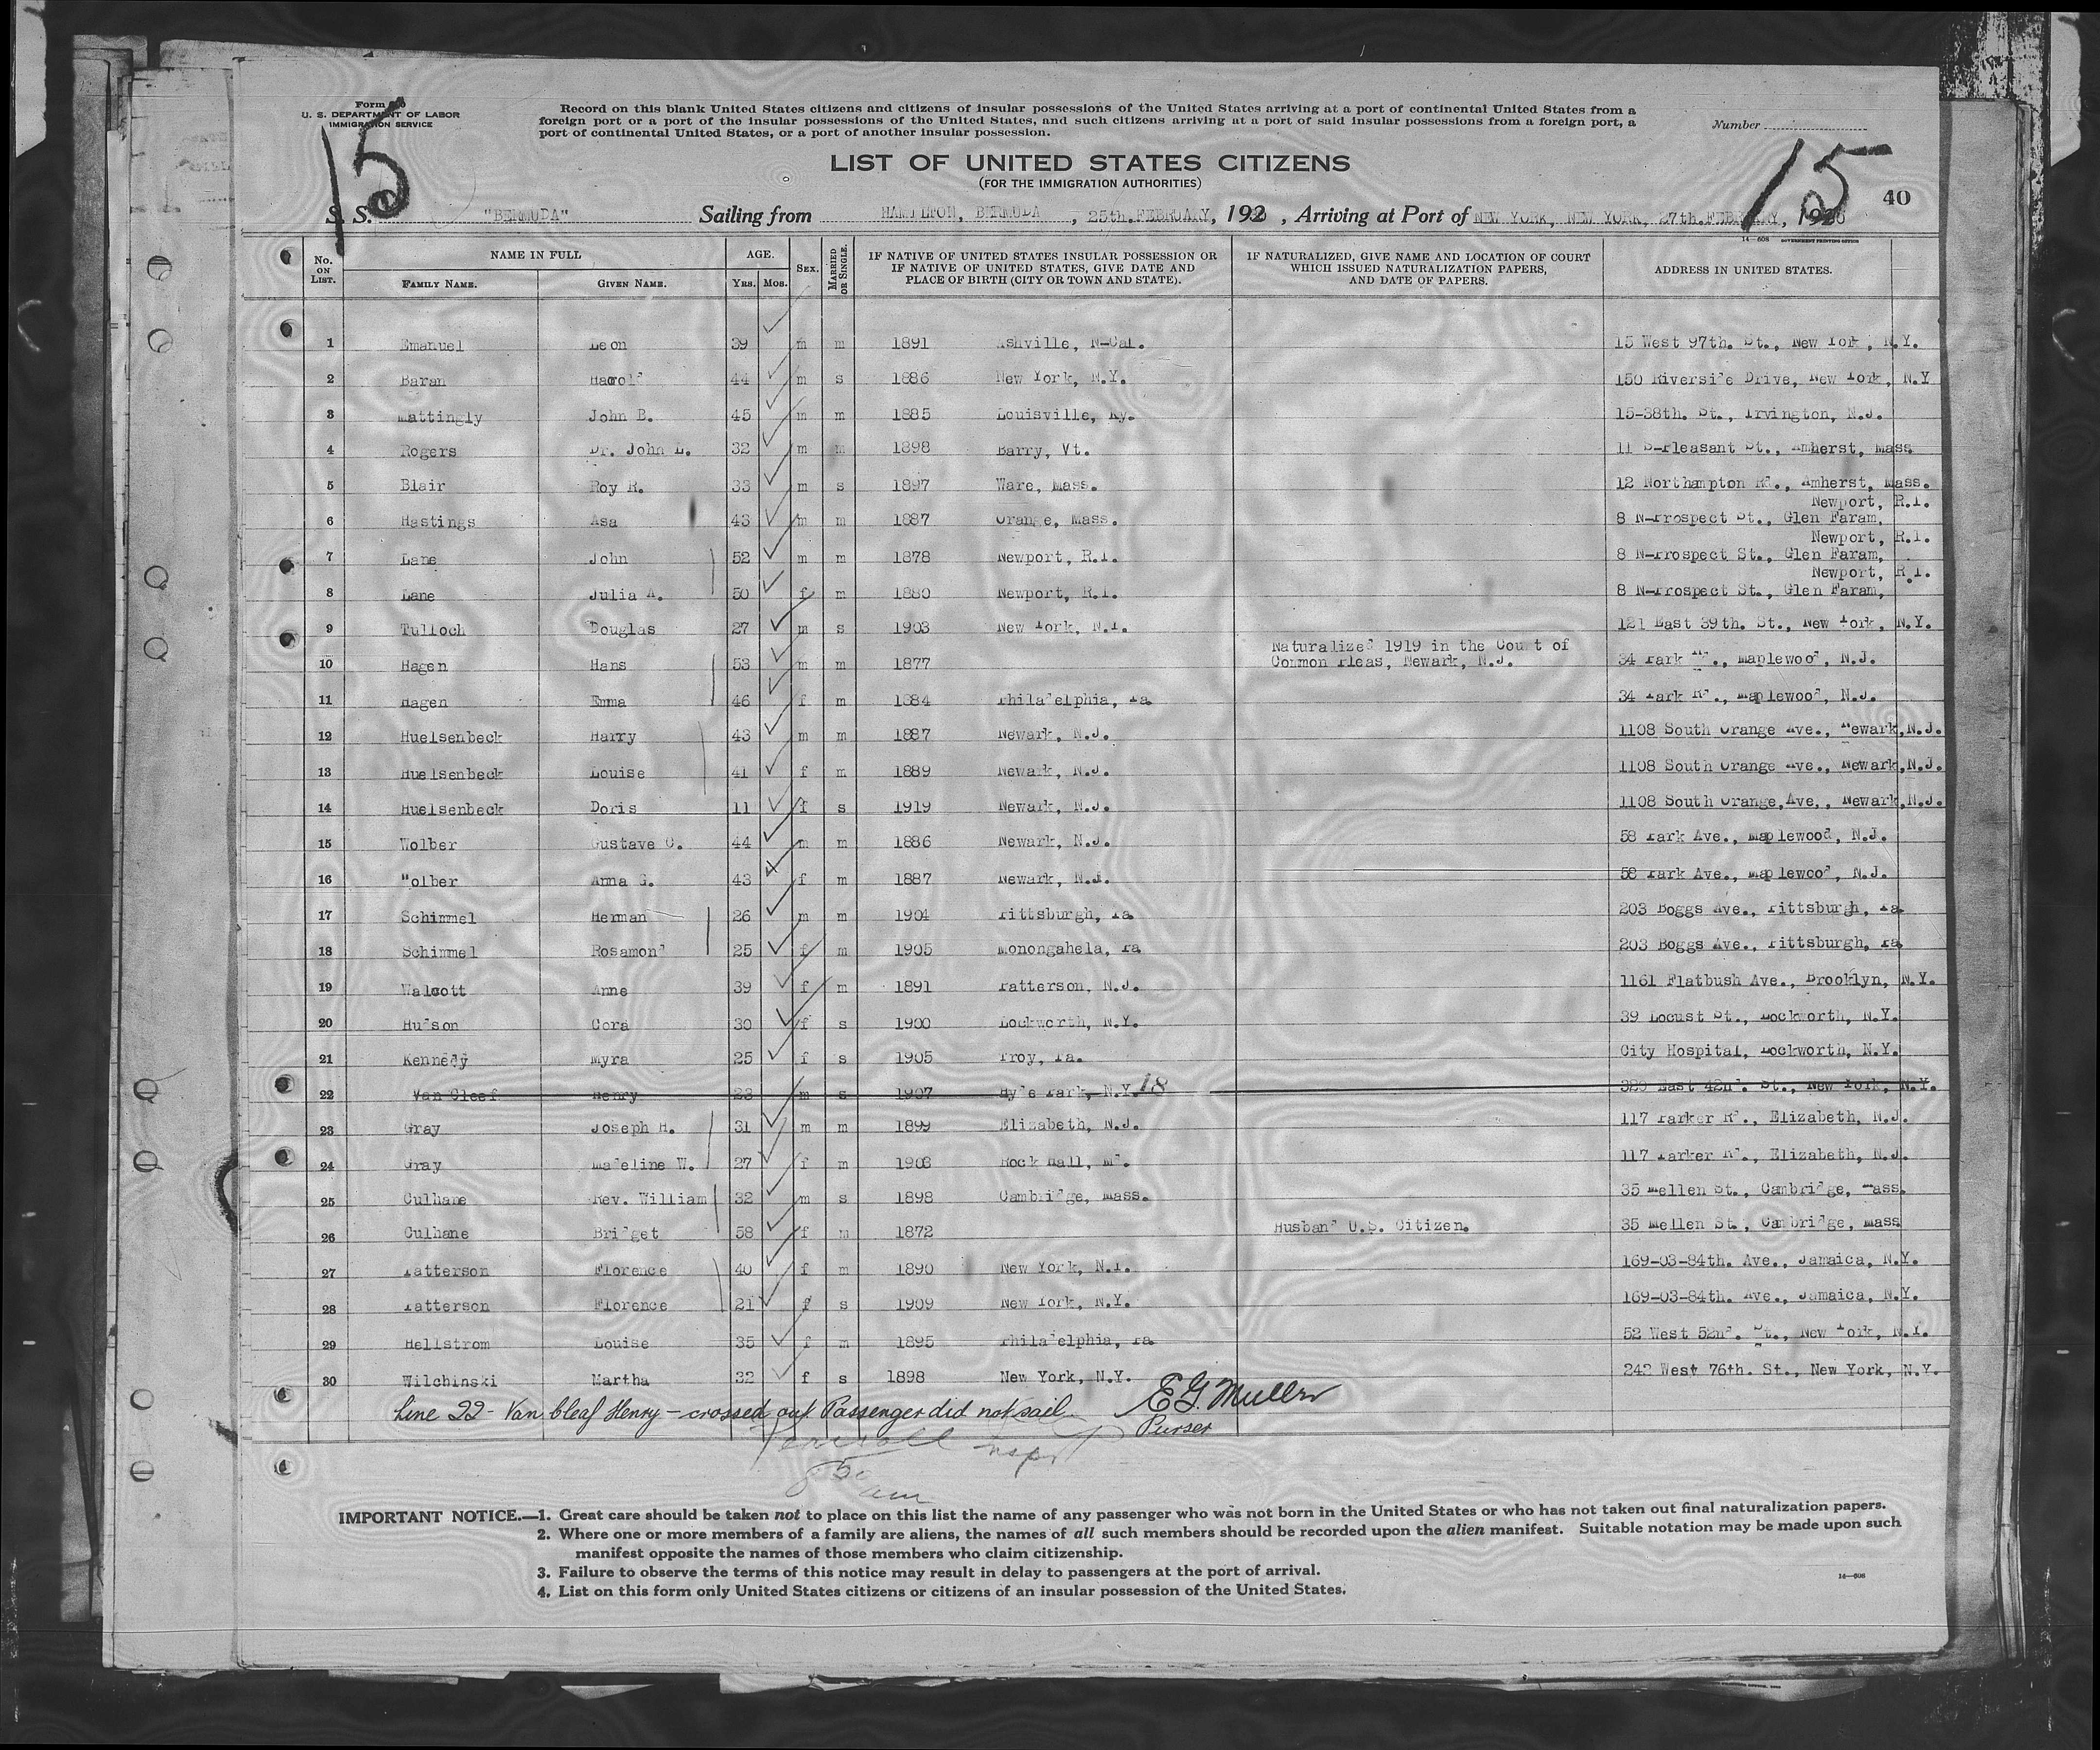 Form
U. S. DEPARTMENT OF LABOR
IMMIGRATION SERVICE
Record on this blank United States citizens and citizens of insular possessions of the United States arriving at a port of continental United States from a
foreign port or a port of the insular possessions of the United States, and such citizens arriving at a port of said insular possessions from a foreign port, a
port of continental United States, or a port of another insular possession.
Number
15
15
LIST OF UNITED STATES CITIZENS
(FOR THE IMMIGRATION AUTHORITIES)
40
S. S. "BERMUDA" Sailing from HAMILTON, BERMUDA, 25th.FEBRUARY, 192 , Arriving at Port of NEW YORK, NEW YORK, 27th.FEBRUARY, 19
14—608 GOVERNMENT PRINTING OFFICE
No. ON LIST. NAME IN FULL AGE. SEX. MARRIED OR SINGLE. IF NATIVE OF UNITED STATES INSULAR POSSESSION OR IF NATIVE OF UNITED STATES, GIVE DATE AND PLACE OF BIRTH (CITY OR TOWN AND STATE). IF NATURALIZED, GIVE NAME AND LOCATION OF COURT WHICH ISSUED NATURALIZATION PAPERS, AND DATE OF PAPERS. ADDRESS IN UNITED STATES.
FAMILY NAME. GIVEN NAME. YRS. MOS.
1 Emanuel Leon 39 m m 1891 Ashville, N-Cal. 15 West 97th. St., New York, N.Y.
2 Baran Harold 44 m s 1886 New York, N.Y. 150 Riverside Drive, New York, N.Y
3 Mattingly John B. 45 m m 1885 Louisville, Ky. 15-38th. St., Irvington, N.J.
4 Rogers Dr. John L. 32 m m 1898 Barry, Vt. 11 S-Pleasant St., Amherst, Mass
5 Blair Roy R. 33 m s 1897 Ware, Mass. 12 Northampton Rd., Amherst, Mass.
Newport, R.I.
6 Hastings Asa 43 m m 1887 Orange, Mass. 8 N-Prospect St., Glen Faram,
Newport, R.I.
7 Lane John 52 m m 1878 Newport, R.I. 8 N-Prospect St., Glen Faram,
Newport, R.I.
8 Lane Julia A. 50 f m 1880 Newport, R.I. 8 N-Prospect St., Glen Faram,
9 Tulloch Douglas 27 m s 1903 New York, N.Y. 121 East 39th. St., New York, N.Y.
10 Hagen Hans 53 m m 1877 Naturalized 1919 in the Court of Common Pleas, Newark, N.J. 34 Park Rd., Maplewood, N.J.
11 Hagen Emma 46 f m 1884 Philadelphia, Pa 34 Park Rd., Maplewood, N.J.
12 Huelsenbeck Harry 43 m m 1887 Newark, N.J. 1108 South Orange Ave., Newark, N.J.
13 Huelsenbeck Louise 41 f m 1889 Newark, N.J. 1108 South Orange Ave., Newark, N.J.
14 Huelsenbeck Doris 11 f s 1919 Newark, N.J. 1108 South Orange,Ave,, Newark, N.J.
15 Wolber Gustave C. 44 m m 1886 Newark, N.J. 58 Park Ave., Maplewood, N.J.
16 Wolber Anna G. 43 f m 1887 Newark, N.J. 58 Park Ave., Maplewood, N.J.
17 Schimmel Herman 26 m m 1904 Pittsburgh, Pa 203 Boggs Ave., Pittsburgh, Pa
18 Schimmel Rosamond 25 f m 1905 Monongahela, Pa 203 Boggs Ave., Pittsburgh, Pa
19 Walcott Anne 39 f m 1891 Patterson, N.J. 1161 Flatbush Ave., Brooklyn, N.Y.
20 Hudson Cora 30 f s 1900 Lockworth, N.Y. 39 Locust St., Lockworth, N.Y.
21 Kennedy Myra 25 f s 1905 Troy, Pa. City Hospital, Lockworth, N.Y.
22 Van Cleef Henry 23 m s 1907 Hyde Park, N.Y. 18 320 East 42nd. St., New York, N.Y.
23 Gray Joseph H. 31 m m 1899 Elizabeth, N.J. 117 Parker Rd., Elizabeth, N.J.
24 Gray Madeline W. 27 f m 1903 Rock Hall, Md. 117 Parker Rd., Elizabeth, N.J.
25 Culhane Rev. William 32 m s 1898 Cambridge, Mass. 35 Mellen St., Cambridge, Mass.
26 Culhane Bridget 58 f m 1872 Husband U.S. Citizen. 35 Mellen St., Cambridge, Mass
27 Patterson Florence 40 f m 1890 New York, N.Y. 169-03-84th. Ave., Jamaica, N.Y.
28 Patterson Florence 21 f s 1909 New York, N.Y. 169-03-84th. Ave., Jamaica, N.Y.
29 Hellstrom Louise 35 f m 1895 Philadelphia, Pa 52 West 52nd. St., New York, N.Y.
30 Wilchinski Martha 32 f s 1898 New York, N.Y. 242 West 76th. St., New York, N.Y.
Line 22 - Van Cleaf Henry - crossed out. Passenger did not sail. E G Muller
Purser
Inspr
8 50 am
IMPORTANT NOTICE.—1. Great care should be taken not to place on this list the name of any passenger who was not born in the United States or who has not taken out final naturalization papers.
2. Where one or more members of a family are aliens, the names of all such members should be recorded upon the alien manifest. Suitable notation may be made upon such
manifest opposite the names of those members who claim citizenship.
3. Failure to observe the terms of this notice may result in delay to passengers at the port of arrival.
4. List on this form only United States citizens or citizens of an insular possession of the United States.
14—608